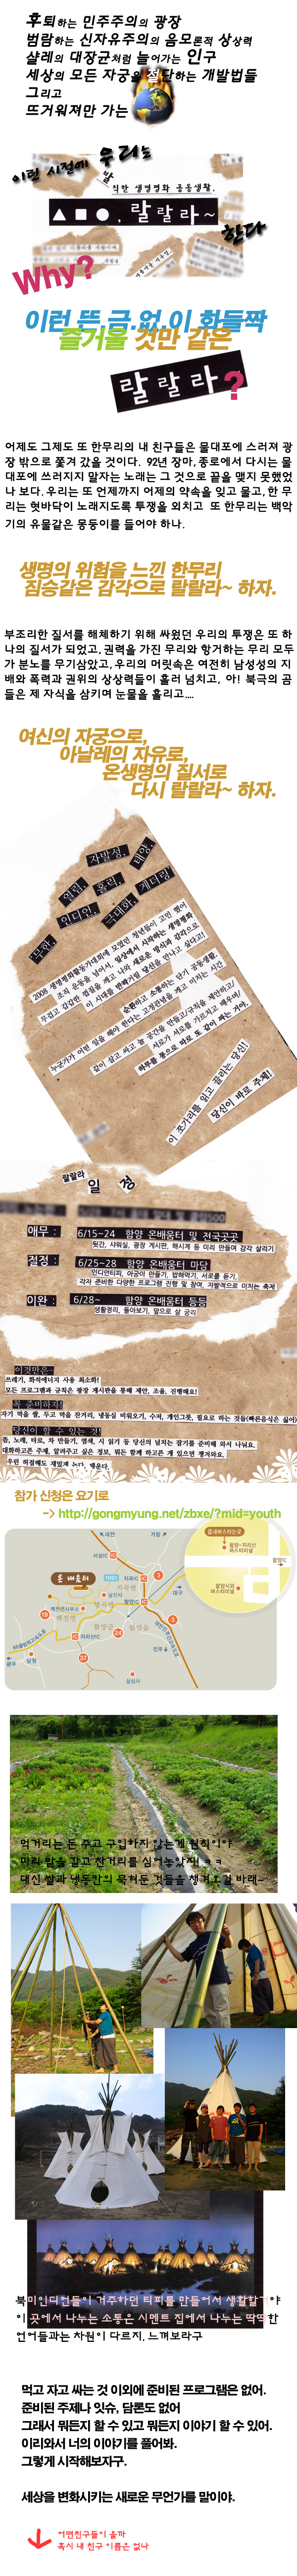 후퇴하는 민주주의의 광장
범람하는 신자유주의의 음모론적 상상력
샬레의 대장균처럼 늘어가는 인구
세상의 모든 자궁을 절단하는 개발법들
그리고
뜨거워져만 가는
이런 시절에 우리는
발칙한 생명평화 공동생활,
▲■●, 랄랄라~
한다
Why?
이런 뜬.금.없.이 화들짝
즐거울 것만 같은
랄랄라?
어제도 그제도 또 한무리의 내 친구들은 물대포에 스러져 광
장 밖으로 쫓겨 갔을 것이다. 92년 장마, 종로에서 다시는 물
대포에 쓰러지지 말자는 노래는 그 것으로 끝을 맺지 못했었
나 보다. 우리는 또 언제까지 어제의 약속을 잊고 물고, 한 무
리는 혓바닥이 노래지도록 투쟁을 외치고 또 한무리는 백악
기의 유물같은 몽둥이를 들어야 하나.
생명의 위험을 느낀 한무리
짐승같은 감각으로 랄랄라~ 하자.
부조리한 질서를 해체하기 위해 싸웠던 우리의 투쟁은 또 하
나의 질서가 되었고, 권력을 가진 무리와 항거하는 무리 모두
가 분노를 무기삼았고, 우리의 머릿속은 여전히 남성성의 지
배와 폭력과 권위의 상상력들이 흘러 넘치고, 아! 북극의 곰
들은 제 자식을 삼키며 눈물을 흘리고....
여신의 자궁으로,
아날레의 자유로,
온생명의 질서로
다시 랄랄라~ 하자.
자발성, 태양,
일탈, 홀리, 게더링!
무한, 인디언, 극대화,
2008 생명평화활동가대회에 모였던 청년들이 고민 했어
조직 운동을 넘어서, 일상에서 시작하는 생명평화
무겁고 갑갑한 껍질을 깨고 나와 새로운 방식과 감각으로
이 시대를 반빼기할 당신을 만나고 싶다고!
순환하고 소통하는 단기 공동생활,
누군가가 어떤 일을 해야 한다는 고정관념을 깨고 미치는 시간
같이 살고 싸고 놀 공간을 만들고/규칙을 제안하고/
서로가 서로를 가르치고 배우며/
하루를 통으로 따로 또 같이 짜는 거야.
이 쪼가리를 읽고 끌리는 당신!
당신이 바로 주체!
랄랄라 일 정
애무 : 6/15~24 함양 온배움터 및 전국곳곳
뒷간, 샤워실, 광장 게시판, 해시계 등 미리 만들며 감각 살리기
절정 : 6/25~28 함양 온배움터 마당
인디언티피, 아궁이 만들기, 밥해먹기, 서로를 듣기
각자 준비한 다양한 프로그램 진행 및 참여, 자발적으로 미치는 축제
이완 : 6/28~ 함양 온배움터 등등
생활정리, 돌아보기, 앞으로 살 궁리
이것만은~
쓰레기, 화석에너지 사용 최소화!
모든 프로그램과 규칙은 광장 게시판을 통해 제안, 조율, 진행해요!
꼭 준비하자!
자기 먹을 쌀, 두고 먹을 찬거리, 냉동실 비워오기, 수저, 개인그릇, 필요로 하는 것들(빠른음식은 싫어)
당신이 할 수 있는 것!
춤, 노래, 타로, 차 만들기, 염색, 시 읽기 등 당신의 넘치는 잡기를 준비해 와서 나눠요.
대화하고픈 주제, 알려주고 싶은 정보, 뭐든 함께 하고픈 게 있으면 챙겨와요.
우린 허접해도 재밌게 논다, 배운다.
참가 신청은 요기로
-> http://gongmyung.net/zbxe/?mid=youth
대전
거창
서상IC
지곡IC
지곡면
온 배움터
1001
남산사
백전면사무소
백전면
병곡면
함양IC
대구
함양군
함양읍
88올림픽고속도로
지리산IC
광주
남원
대전진주간고속도로
진주
실상사
3
19
24
37
함양~지리산
버스터미널
함양시외
버스터미널
함양IC
먹거리는 돈 주고 구입하지 않는게 원칙이야
미리 밭을 갈고 찬거리를 심어놓았지! ㅋㅋ
대신 쌀과 냉동칸의 묵혀둔 것들을 챙겨오길 바래~
북미인디언들이 거주하던 티피를 만들어서 생활할거야
이 곳에서 나누는 소통은 시멘트 집에서 나누는 딱딱한
언어들과는 차원이 다르지. 느껴보라구
먹고 자고 싸는 것 이외에 준비된 프로그램은 없어.
준비된 주제나 잇슈, 담론도 없어
그래서 뭐든지 할 수 있고 뭐든지 이야기 할 수 있어.
이리와서 너의 이야기를 풀어봐.
그렇게 시작해보자구.
세상을 변화시키는 새로운 무언가를 말이야.
어떤친구들이 올까
혹시 내 친구 이름은 없나